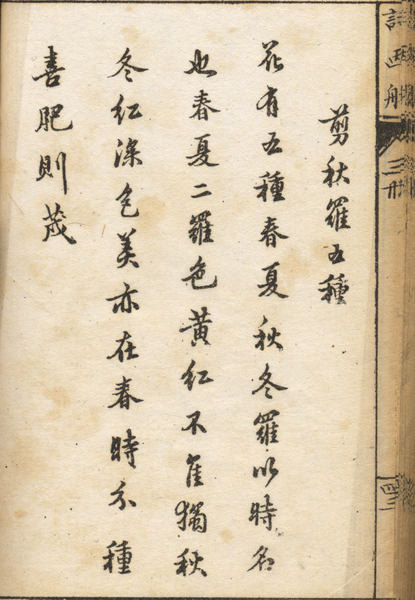 詩画舫
剪秋羅五種
花有五種春夏秋冬羅以時名
也春夏二羅色黃紅不佳獨秋
冬紅深色美亦在春時分種
喜肥則茂